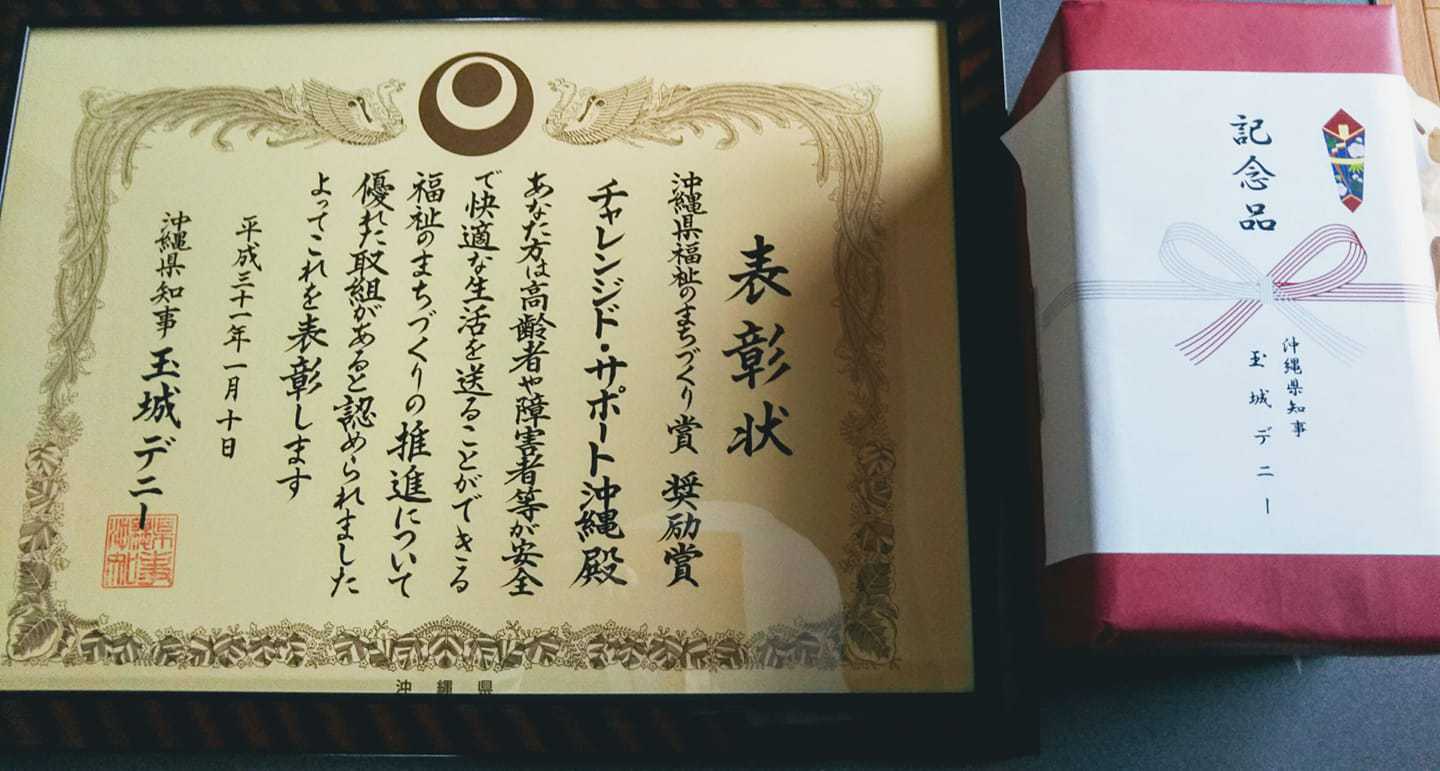 表彰状
沖縄県福祉のまちづくり賞 奨励賞
チャレンジド・サポート沖縄殿
あなた方は高齢者や障害者等が安全
で快適な生活を送ることができる
福祉のまちづくりの推進について
優れた取組があると認められました
よってこれを表彰します
平成三十一年一月十日
沖縄県知事 玉城デニー
沖縄県
記念品
沖縄県知事
玉城デニー